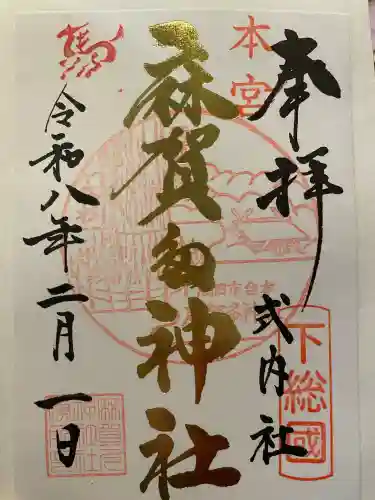 奉拝
本宮
式内社
下総國
麻賀多神社
馬
令和八年二月一日